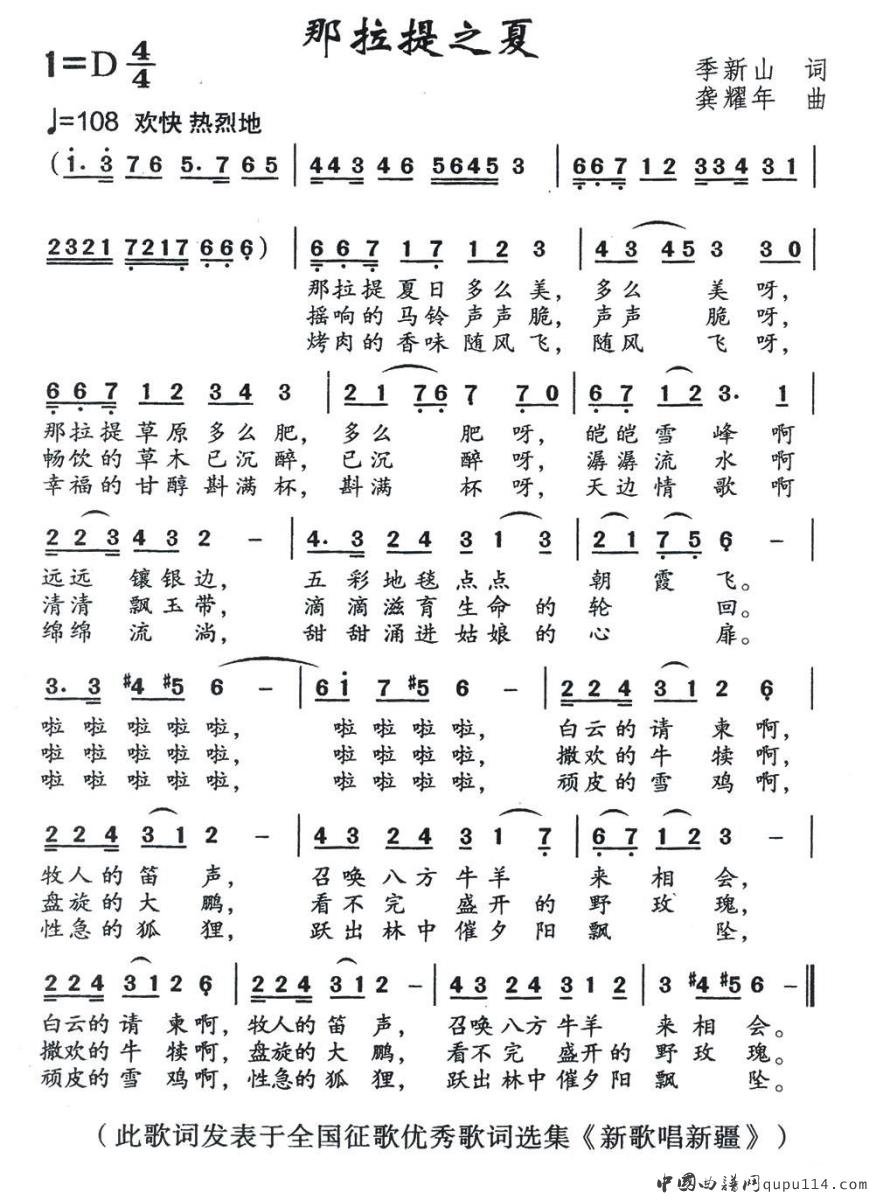 那拉提之夏
1=D 4/4
季新山 词
龚耀年 曲
♩=108 欢快 热烈地
(1. 3 76 5. 7 65 | 443 46 5645 3 | 667 12 334 31 |
2321 7217 666) | 667 17 12 3 | 43 45 3 30 |
那拉提夏日多么美，多么 美呀，
摇响的马铃声声脆，声声 脆呀，
烤肉的香味随风飞，随风 飞呀，
667 12 34 3 | 21 76 7 70 | 67 12 3. 1 |
那拉提草原多么肥，多么 肥呀，皑皑雪峰啊
畅饮的草木已沉醉，已沉 醉呀，潺潺流水啊
幸福的甘醇斟满杯，斟满 杯呀，天边情歌啊
223 43 2 - | 4. 3 24 3 1 3 | 21 75 6 - |
远远 镶银边， 五彩地毯点点 朝霞飞。
清清 飘玉带， 滴滴滋育生命的轮 回。
绵绵 流淌， 甜甜涌进姑娘的心 扉。
3. 3 #4 #5 6 - | 61 7 #5 6 - | 224 31 2 6 |
啦啦啦啦啦， 啦啦啦啦， 白云的请柬啊，
啦啦啦啦啦， 啦啦啦啦， 撒欢的牛犊啊，
啦啦啦啦啦， 啦啦啦啦， 顽皮的雪鸡啊，
224 31 2 - | 43 24 3 1 7 | 67 12 3 - |
牧人的笛声， 召唤八方牛羊 来相会，
盘旋的大鹏， 看不完盛开的野玫瑰，
性急的狐狸， 跃出林中催夕阳飘 坠，
224 31 2 6 | 224 31 2 - | 43 24 31 2 | 3 #4 #5 6 - ‖
白云的请柬啊，牧人的笛声， 召唤八方牛羊 来相会。
撒欢的牛犊啊，盘旋的大鹏， 看不完盛开的野玫瑰。
顽皮的雪鸡啊，性急的狐狸， 跃出林中催夕阳飘 坠。
（此歌词发表于全国征歌优秀歌词选集《新歌唱新疆》）
中國曲譜网qupu114.com